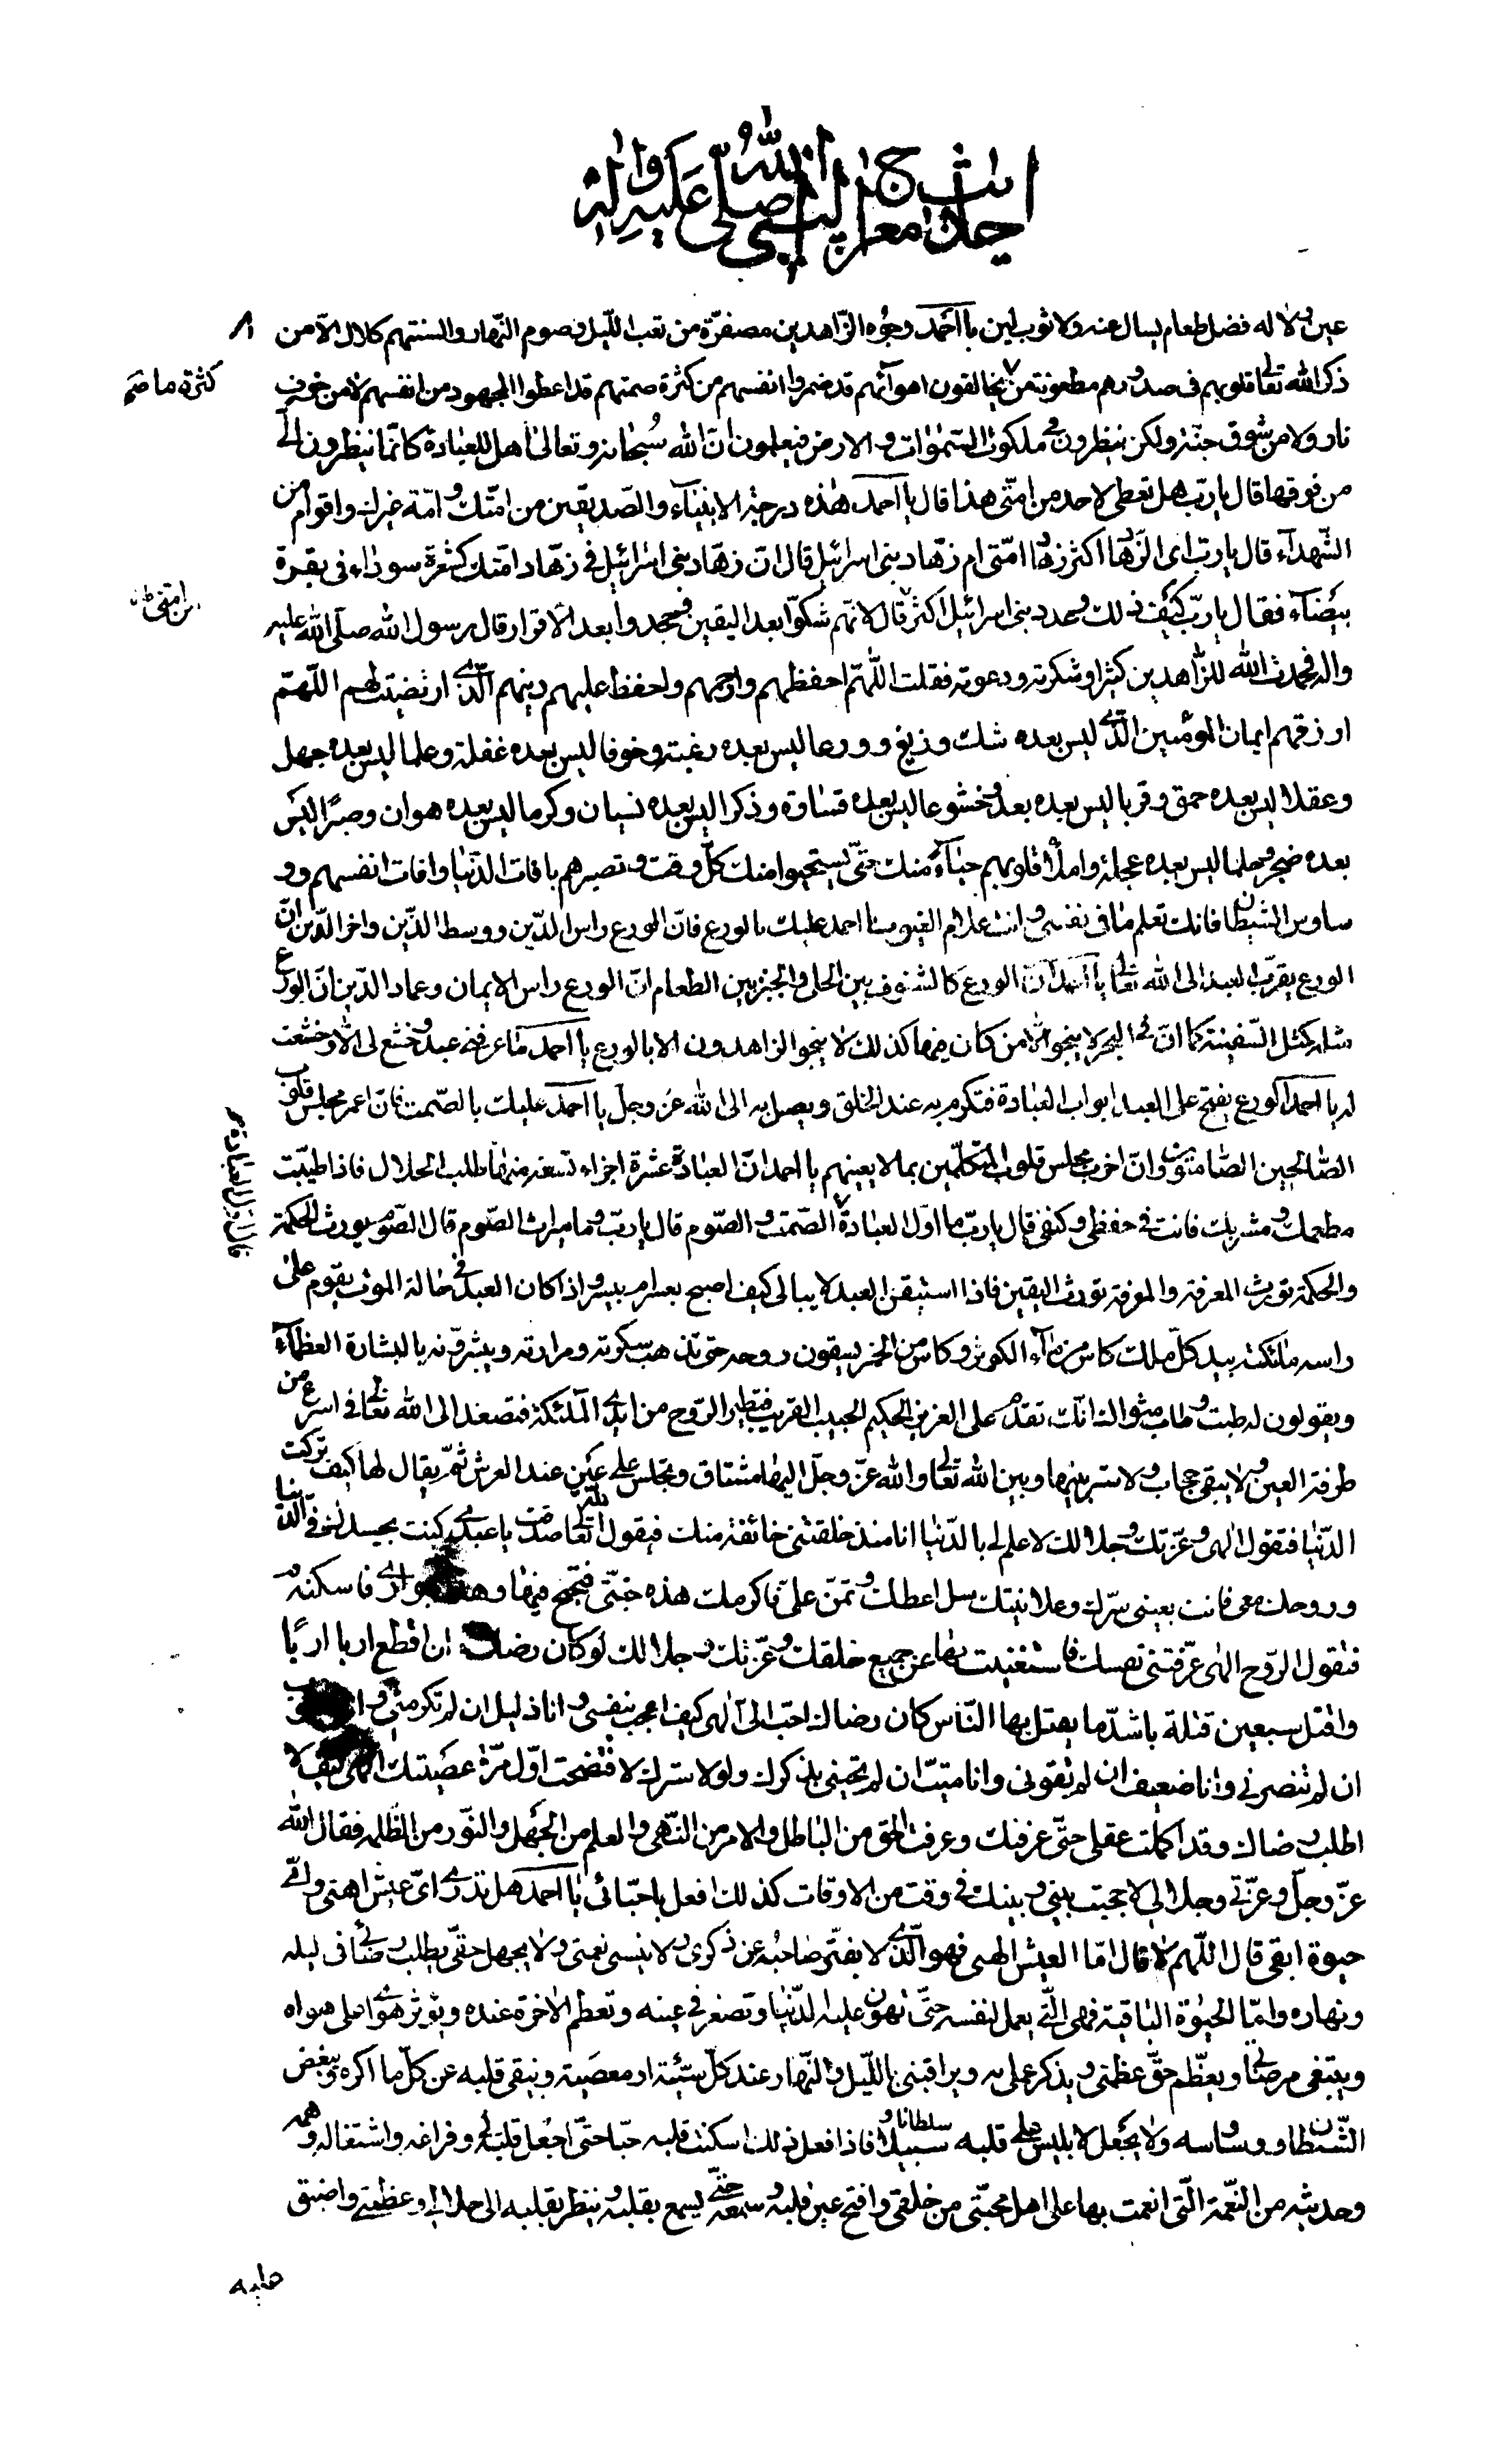 احاديث معراج النبي صلى الله عليه واله
عين ولا له فضل طعام يسال عنه ولا ثوب لين يا احمد وجوه الزاهدين مصفرة من تعب الليل وصوم النهار والسنتهم كلال الا من
ذكر الله تعالى قلوبهم في صدورهم مطعونة من يخالفون اهوآئهم قد ضمروا انفسهم من كثرة صمتهم قد اعطوا المجهود من انفسهم لا من خوف
كثرة ما
نار ولا من شوق جنة ولكن ينظرون في ملكوت السموات والارض فيعلمون ان الله سبحانه وتعالى اهل للعبادة كانما ينظرون الى
من فوقها قال يا رب هل تعطى لاحد من امتى هذا قال يا احمد هذه درجة الانبياء والصديقين من امتك وامة غيرك واقوام من
الشهدآء قال يا رب اى الزهاد اكثر زهاد امتى ام زهاد بنى اسرائيل قال ان زهاد بنى اسرائيل في زهاد امتك كشعرة سوداء في بقرة
بيضآء فقال يا رب كيف ذلك وعدد بنى اسرائيل اكثر قال لانهم شكوا بعد اليقين وجحدوا بعد الاقرار قال رسول الله صلى الله عليه
من امتى
واله فحمدت الله للزاهدين كثيرا وشكرته ودعوته فقلت اللهم احفظهم وارحمهم واحفظ عليهم دينهم الذى ارتضيت لهم اللهم
ارزقهم ايمان المؤمنين الذى ليس بعده شك وزيغ وورعا ليس بعده رغبة وخوفا ليس بعده غفلة وعلما ليس بعده جهل
وعقلا ليس بعده حمق وقربا ليس بعده بعد وخشوعا ليس بعده قساوة وذكرا ليس بعده نسيان وكرما ليس بعده هوان وصبرا ليس
بعده ضجر وحلما ليس بعده عجلة واملأ قلوبهم حياء منك حتى يستحيوا منك كل وقت وتصيرهم بافات الدنيا وافات انفسهم وو
ساوس الشيطان فانك تعلم ما في نفسى وانت علام الغيوب يا احمد عليك بالورع فان الورع راس الدين ووسط الدين واخر الدين ان
الورع يقرب العبد الى الله تعالى يا احمد ان الورع كالشنوف بين الحلى والخبز بين الطعام ان الورع راس الايمان وعماد الدين ان الورع
مثله كمثل السفينة كما ان في البحر لا ينجو الا من كان فيها كذلك لا ينجو الزاهدون الا بالورع يا احمد ما عرفنى عبد وخشع لى الا وخشعت
له يا احمد الورع يفتح على العبد ابواب العبادة فتكرم به عند الخلق ويصل به الى الله عز وجل يا احمد عليك بالصمت فان اعمر مجلس قلوب
الصالحين الصامتون وان اخرب مجلس قلوب المتكلمين بما لا يعينهم يا احمد ان العبادة عشرة اجزاء تسعة منها طلب الحلال فاذا طيبت
مطعمك ومشربك فانت في حفظى وكنفى قال يا رب ما اول العبادة الصمت والصوم قال يا رب وما ميراث الصوم قال الصوم يورث الحكمة
قال اول العبادة
والحكمة تورث المعرفة والمعرفة تورث اليقين فاذا استيقن العبد لا يبالى كيف اصبح بعسر ام بيسر واذا كان العبد في حالة الموت يقوم على
راسه ملئكة بيد كل ملك كاس من مآء الكوثر وكاس من الخمر يسقون روحه حتى تذهب سكرته ومرارته ويبشرونه بالبشارة العظمآء
ويقولون له طبت وطاب مثواك انك تقدم على العزيز الحكيم الحبيب القريب فتطير الروح من ايدى الملئكة فتصعد الى الله تعالى في اسرع من
طرفة العين ولا يبقى حجاب ولا ستر بينها وبين الله تعالى والله عز وجل اليها مشتاق وتجلس على عين عند العرش ثم يقال لها كيف تركت
الدنيا فتقول الهى وعزتك وجلالك لا علم لى بالدنيا انا منذ خلقتنى خائفة منك فيقول الله تعالى صدقت يا عبدى كنت بجسدك في الدنيا
وروحك معى فانت بعينى سرك وعلانيتك سل اعطك وتمن على فاكرمك هذه جنتى فتبحبح فيها وهذا جوارى فاسكنه
فتقول الروح الهى عرفتنى نفسك فاستغنيت بها عن جميع خلقك وعزتك وجلالك لو كان رضاك ان اقطع اربا اربا
واقتل سبعين قتلة باشد ما يقتل بها الناس كان رضاك احب الى الهى كيف اعجب بنفسى وانا ذليل ان لم تكرمنى وانا
ان لم تنصرنى وانا ضعيف ان لم تقونى وانا ميت ان لم تحيينى بذكرك ولولا سترك لافتضحت اول مرة عصيتك الهى كيف لا
اطلب رضاك وقد اكملت عقلى حتى عرفتك وعرفت الحق من الباطل والامر من النهى والعلم من الجهل والنور من الظلمة فقال الله
عز وجل وعزتى وجلالى لا حجبت بينى وبينك في وقت من الاوقات كذلك افعل باحبائى يا احمد هل تدرى اى عيش اهنى واى
حيوة ابقى قال اللهم لا قال اما العيش الهنى فهو الذى لا يفتر صاحبه عن ذكرى ولا ينسى نعمتى ولا يجهل حقى يطلب رضائى في ليله
ونهاره واما الحيوة الباقية فهى التى يعمل لنفسه حتى تهون عليه الدنيا وتصغر في عينه وتعظم الاخرة عنده ويؤثر هواى على هواه
ويبتغى مرضاتى ويعظم حق عظمتى ويذكر عملى به ويراقبنى بالليل والنهار عند كل سيئة او معصية وينقى قلبه عن كل ما اكره ويبغض
الشيطان ووساوسه ولا يجعل لابليس على قلبه سلطانا وسبيلا فاذا فعل ذلك اسكنت قلبه حبا حتى اجعل قلبه لى وفراغه واشتغاله وهمه
وحديثه من النعمة التى انعمت بها على اهل محبتى من خلقى وافتح عين قلبه وسمعه حتى يسمع بقلبه وينظر بقلبه الى جلالى وعظمتى واضيق
عليه